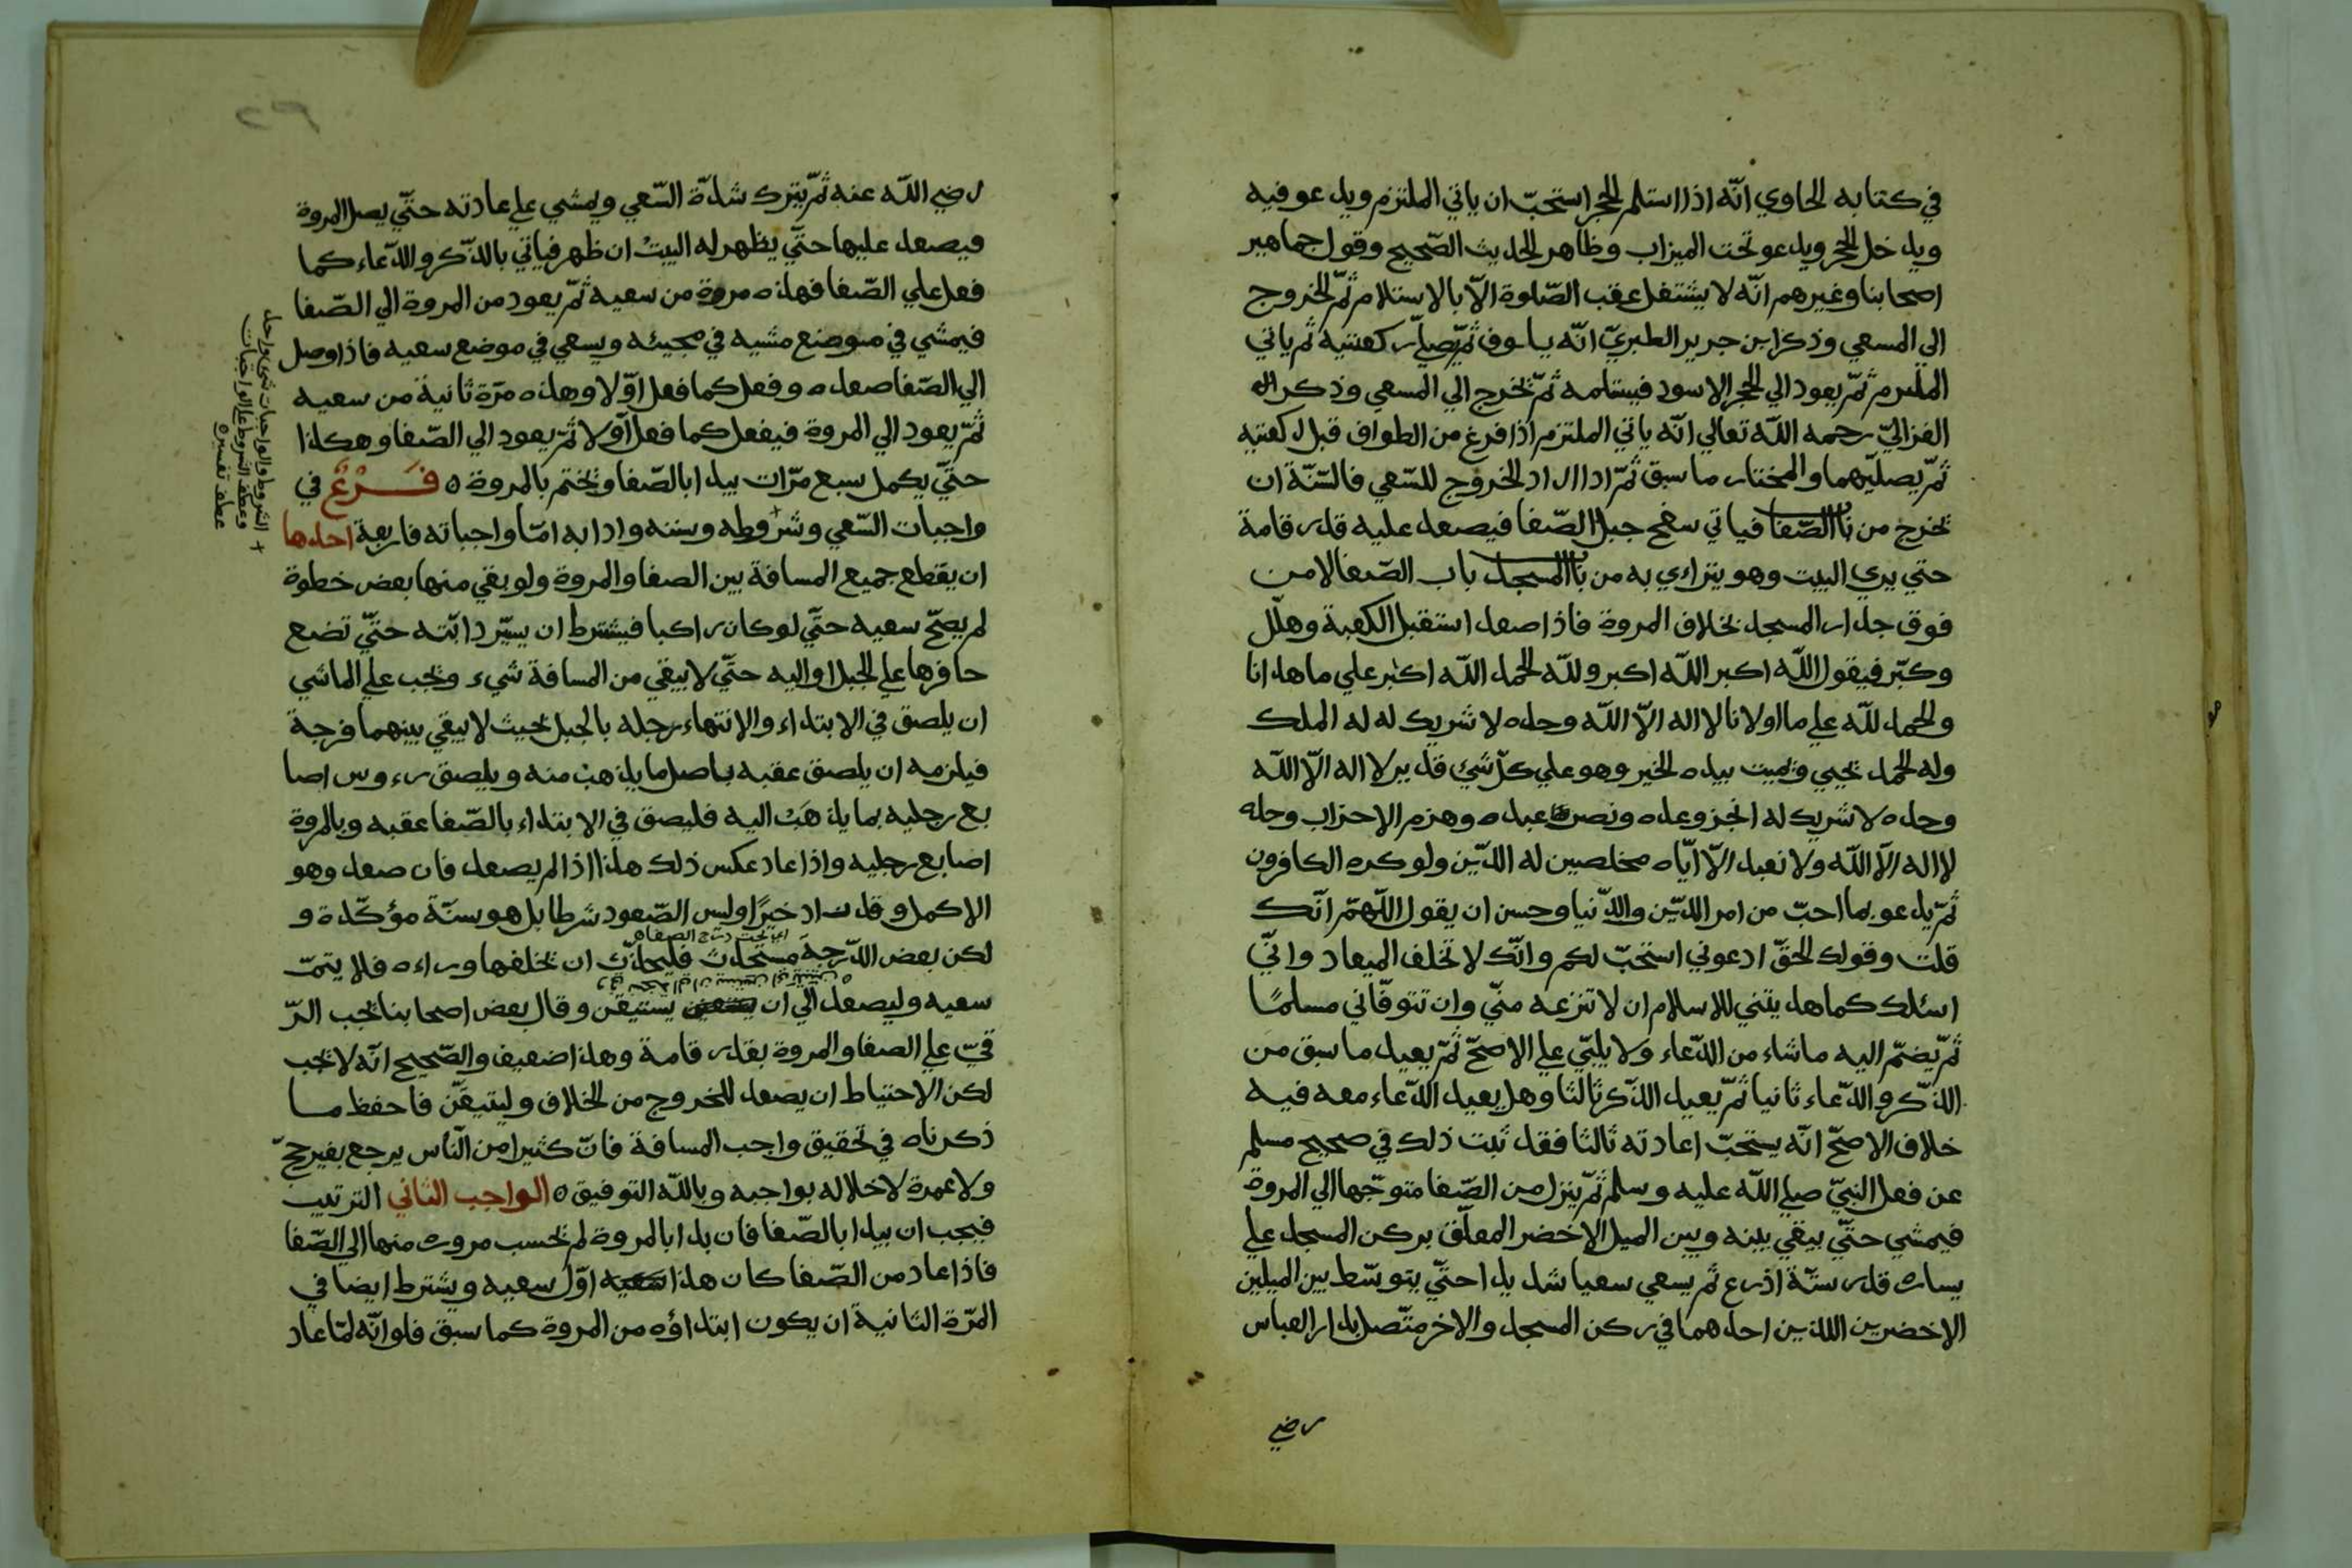 في كتابه الحاوي انّه اذا استلم الحجر استحبّ ان ياتي الملتزم ويدعو فيه
ويدخل الحجر ويدعو تحت الميزاب وظاهر الحديث الصّحيح وقول جماهير
اصحابنا وغيرهم انّه لا يشتغل عقب الصّلوة الّا بالاستلام ثمّ الخروج
الي المسعي وذكر ابن جرير الطبريّ انّه يطوف ثمّ يصلّي ركعتيه ثم ياتي
الملتزم ثمّ يعود الي الحجر الاسود فيستلمه ثمّ يخرج الي المسعي وذكر
الغزاليّ رحمه اللّه تعالي انّه ياتي الملتزم اذا فرغ من الطواف قبل ركعتيه
ثمّ يصليّهما والمختار ما سبق ثمّ اذا اراد الخروج للسّعي فالسّنّة ان
يخرج من باب الصّفا فياتي سفح جبل الصّفا فيصعد عليه قدر قامة
حتي يري البيت وهو يتراءي به من باب المسجد باب الصّفا لا من
فوق جدار المسجد بخلاف المروة فاذا صعد استقبل الكعبة وهلّل
وكبّر فيقول اللّه اكبر اللّه اكبر وللّه الحمد اللّه اكبر علي ما هدانا
والحمد للّه علي ما اولانا لا اله الّا اللّه وحده لا شريك له له الملك
وله الحمد يحيي ويميت بيده الخير وهو علي كلّ شيئ قدير لا اله الّا اللّه
وحده لا شريك له انجز وعده ونصر عبده وهزم الاحزاب وحده
لا اله الّا اللّه ولا نعبد الّا ايّاه مخلصين له الدّين ولو كره الكافرون
ثمّ يدعو بما احبّ من امر الدّين والدّنيا وحسن ان يقول اللّهمّ انّك
قلت وقولك الحقّ ادعوني استجبّ لكم وانّك لا تخلف الميعاد وانّي
اسئلك كما هديتني للاسلام ان لا تنزعه منّي وان تتوفّاني مسلمًا
ثمّ يضمّ اليه ما شاء من الدّعاء ولا يلبّي علي الاصحّ ثمّ يعيد ما سبق من
الذّكر والدّعاء ثانيا ثمّ يعيد الذّكر ثالثا وهل يعيد الدّعاء معه فيه
خلاف الاصحّ انّه يستحبّ اعادته ثالثا فقد ثبت ذلك في صحيح مسلم
عن فعل النبيّ صلي اللّه عليه وسلم ثمّ ينزل من الصّفا متوجّها الي المروة
فيمشي حتّي يبقي بينه وبين الميل الاخضر المعلّق بركن المسجد علي
يساره قدر ستّة اذرع ثم يسعي سعيا شديدا حتّي يتوسّط بين الميلين
الاخضرين اللذين احدهما في ركن المسجد والاخر متّصل بدار العباس
رضي
رضي اللّه عنه ثمّ يترك شدّة السّعي ويمشي علي عادته حتّي يصل المروة
فيصعد عليها حتّي يظهر له البيت ان ظهر فياتي بالذّكر والدّعاء كما
فعل علي الصّفا فهذه مروة من سعيه ثمّ يعود من المروة الي الصّفا
فيمشي في موضع مشيه في مجيئه ويسعي في موضع سعيه فاذا وصل
الي الصّفا صعده وفعل كما فعل اوّلا وهذه مرّة ثانية من سعيه
ثمّ يعود الي المروة فيفعل كما فعل اوّلا ثمّ يعود الي الصّفا وهكذا
حتّي يكمل سبع مرّات يبدا بالصّفا ويختم بالمروة ه فَرْعٌ في
واجبات السّعي وشروطه وسننه وادابه امّا واجباته فاربعة احدها
ان يقطع جميع المسافة بين الصفا والمروة ولو بقي منها بعض خطوة
لم يصحّ سعيه حتّي لو كان راكبا فيشترط ان يسيّر دابّته حتّي تضع
حافرها علي الجبل او اليه حتّي لا يبقي من المسافة شيء ويجب علي الماشي
ان يلصق في الابتداء والانتهاء رجله بالجبل بحيث لا يبقي بينهما فرجة
فيلزمه ان يلصق عقبه باصل ما يذهب منه ويلصق رءوس اصا
بع رجليه بما يذهَب اليه فليصق في الابتداء بالصّفا عقبه وبالمروة
اصابع رجليه واذا عاد عكس ذلك هذا اذا لم يصعد فان صعد وهو
الاكمل وقد زاد خيرًا وليس الصّعود شرطا بل هو سنّة مؤكّدة و
لكن بعض الدّرجة مستحدث فليحذّر ان يخلفها وراءه فلا يتمّ
سعيه وليصعد الي ان يستيقن وقال بعض اصحابنا يجب الرّ
قيّ علي الصفا والمروة بقدر قامة وهذا ضعيف والصّحيح انّه لا يجب
لكن الاحتياط ان يصعد للخروج من الخلاف وليتيقّن فاحفظ ما
ذكرناه في تحقيق واجب المسافة فانّ كثيرا من النّاس يرجع بغير حجّ
ولا عمرة لاخلاله بواجبه وباللّه التوفيق ه الواجب الثاني الترتيب
فيجب ان يبدا بالصّفا فان بدا بالمروة لم يحسب مروره منها الي الصّفا
فاذا عاد من الصّفا كان هذا اوّل سعيه ويشترط ايضا في
المرّة الثانية ان يكون ابتداؤه من المروة كما سبق فلو انّه لمّا عاد
الشروط والواجبات شئ واحد
وعطف الشروط علي الواجبات
عطف تفسيره